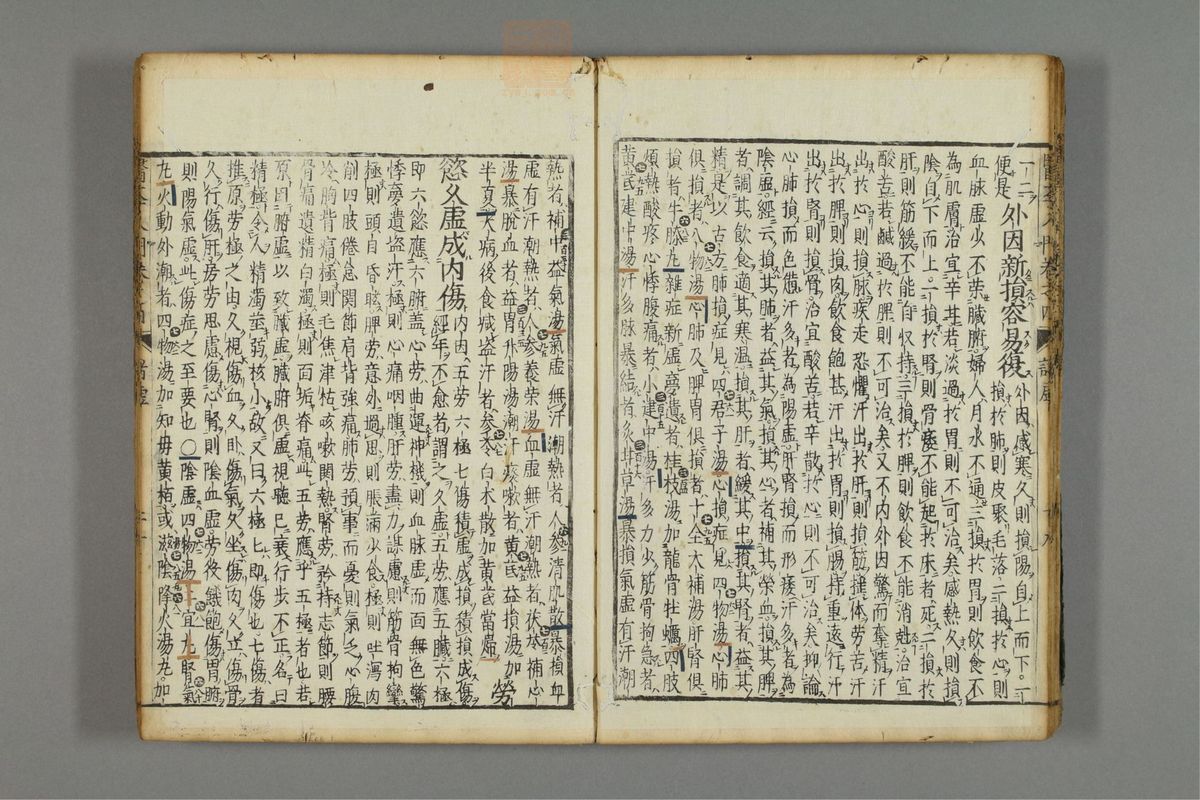 便是外因新損容易復外因感寒久則損陽自上而下一
損於肺則皮聚毛落二損於心則
血脉虛少不荣臟腑婦人月水不通三損於胃則飲食不
為肌膚治宜辛甘若淡過於胃則不可治矣感熱久則損
陰自下而上一損於腎則骨痿不能起於床者死二損於
肝則筋緩不能自收持三損於脾則飲食不能消尅治宜
酸苦若鹹過於脾則不可治矣又不内外因驚而奪精汗
出於心則損脉疾走恐懼汗出於肝則損筋揺体劳苦汗
出於脾則損肉飲食飽甚汗出於胃則損腸持重遠行汗
出於腎則損骨治宜酸苦若辛散於心則不可治矣抑論
心肺損而色㢢汗多者為陽虛肝腎損而形痿汗多者為
陰虛經云損其肺者益其氣損其心者補其榮血損其脾
者調其飲食適其寒温損其肝者緩其中損其腎者益其
精是以古方肺損症見四君子湯心損症見四物湯心肺
俱損者八物湯心肺及脾胃俱損者十全大補湯肝腎俱
損者牛膝丸雜症新虛夢遺者桂枝湯加龍骨牡蠣四肢
煩熱酸疼心悸腹痛者小建中湯汗多力少筋骨拘急者
黄芪建中湯汗多脉暴結者炙甘草湯暴損氣虛有汗潮
熱者補中益氣湯氣虛無汗潮熱者人參清肌散暴損血
虛有汗潮熱者人參養荣湯血虛無汗潮熱者茯苓補心
湯暴脫血者益胃升陽湯潮汗痰嗽者黄芪益損湯加
半夏大病後食堿盗汗者參苓白术散加黄芪當歸 勞
慾久虛成内傷内因五劳六極七傷積虛成損積損成傷
經年不愈者謂之久虛五劳應五臟六極
即六慾應六腑盖心劳曲運神機則血脉虛而面無色驚
悸夢遺盗汗極則心痛咽腫肝劳盡力謀慮則筋骨拘攣
極則頭目昏眩脾劳意外過思則脹滿少食極則吐瀉肉
削四肢倦怠関節肩背強痛肺劳預事而憂則氣乏心腹
冷胸背痛極則毛焦津枯咳嗽関熱腎劳矜持志節則腰
骨痛遺精白濁極則面垢脊痛此五劳應乎五極者也若
原因腑虛以致臟虛臟腑俱虛視聴已衰行步不正名曰
精極令人精濁莖弱核小故又曰六極七即傷也七傷者
推原劳極之由久視傷血久臥傷氣久坐傷肉久立傷骨
久行傷肝房劳思慮傷心腎則陰血虛劳役饑飽傷胃腑
則陽氣虛此傷症之至要也○陰虛四物湯宜九腎氣
丸火動外潮者四物湯加知母黄栢或滋陰降火湯丸加